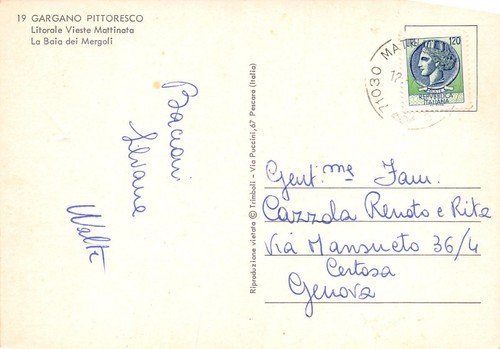 19 GARGANO PITTORESCO
Litorale Vieste Mattinata
La Baia dei Mergoli
Bacioni
Silvana
Walter
Riproduzione vietata © Trimboli - Via Puccini, 67 Pescara (Italia)
71030 MAT
12
120
REPUBBLICA
ITALIANA
Gent.me Fam.
Cazzola Renato e Rita
Via Mansueto 36/4
Certosa
Genova